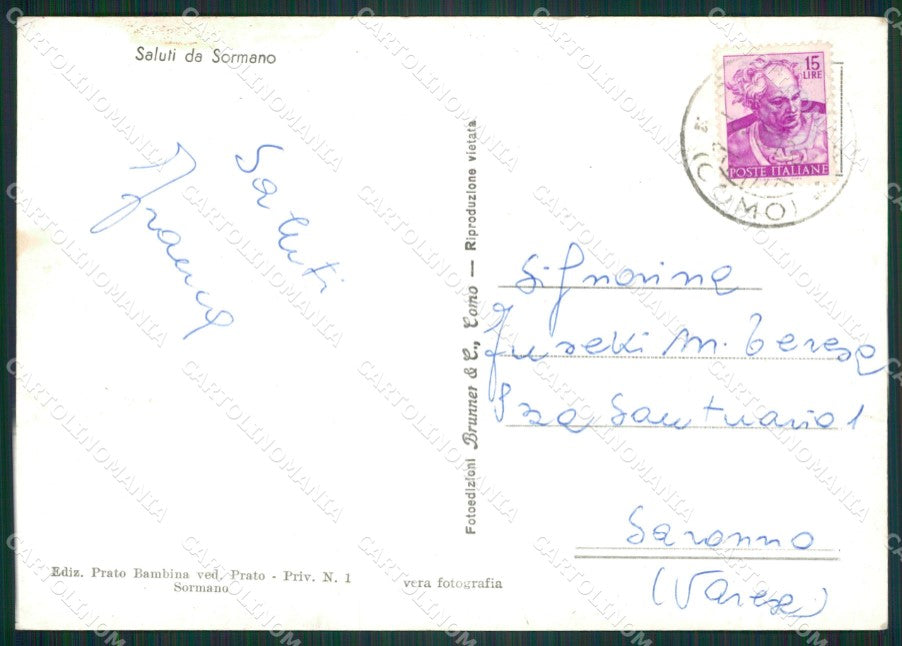 Saluti da Sormano
15
LIRE
POSTE ITALIANE
(COMO)
Saluti
Franca
Signorina
M. Teresa
Pza Santuario 1
Saronno
(Varese)
Fotoedizioni Brunner & C., Como — Riproduzione vietata
Ediz. Prato Bambina ved. Prato - Priv. N. 1
Sormano
vera fotografia
CARTOLINOMANIA